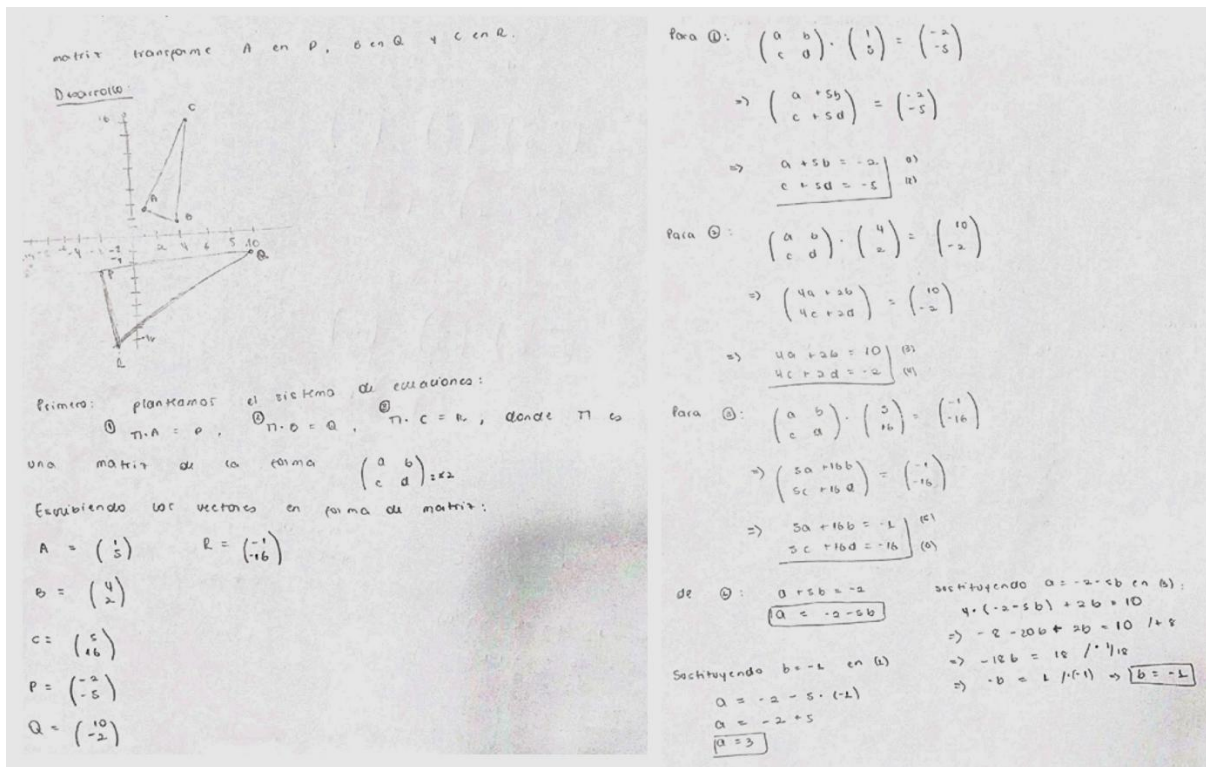 matriz transforme A en P, B en Q y C en R.
Desarrollo:
C
16
A
B
2 4 6 8 10
Q
P
R
Primero: planteamos el sistema de ecuaciones:
① M·A = P, ② M·B = Q, ③ M·C = R, donde M es
una matriz de la forma ( a b
c d )2x2
Escribiendo los vectores en forma de matriz:
A = ( 1
5 ) R = ( -1
-16 )
B = ( 4
2 )
C = ( 5
16 )
P = ( -2
-5 )
Q = ( 10
-2 )
Para ①: ( a b
c d ) · ( 1
5 ) = ( -2
-5 )
=> ( a + 5b
c + 5d ) = ( -2
-5 )
=> a + 5b = -2 (1)
c + 5d = -5 (2)
Para ②: ( a b
c d ) · ( 4
2 ) = ( 10
-2 )
=> ( 4a + 2b
4c + 2d ) = ( 10
-2 )
=> 4a + 2b = 10 (3)
4c + 2d = -2 (4)
Para ③: ( a b
c d ) · ( 5
16 ) = ( -1
-16 )
=> ( 5a + 16b
5c + 16d ) = ( -1
-16 )
=> 5a + 16b = -1 (5)
5c + 16d = -16 (6)
de : a + 5b = -2
a = -2 - 5b
Sustituyendo b = -1 en (1)
a = -2 - 5 · (-1)
a = -2 + 5
a = 3
Sustituyendo a = -2 - 5b en (3):
4 · (-2 - 5b) + 2b = 10
=> -8 - 20b + 2b = 10 /+ 8
=> -18b = 18 /· 1/18
=> -b = 1 /·(-1) => b = -1